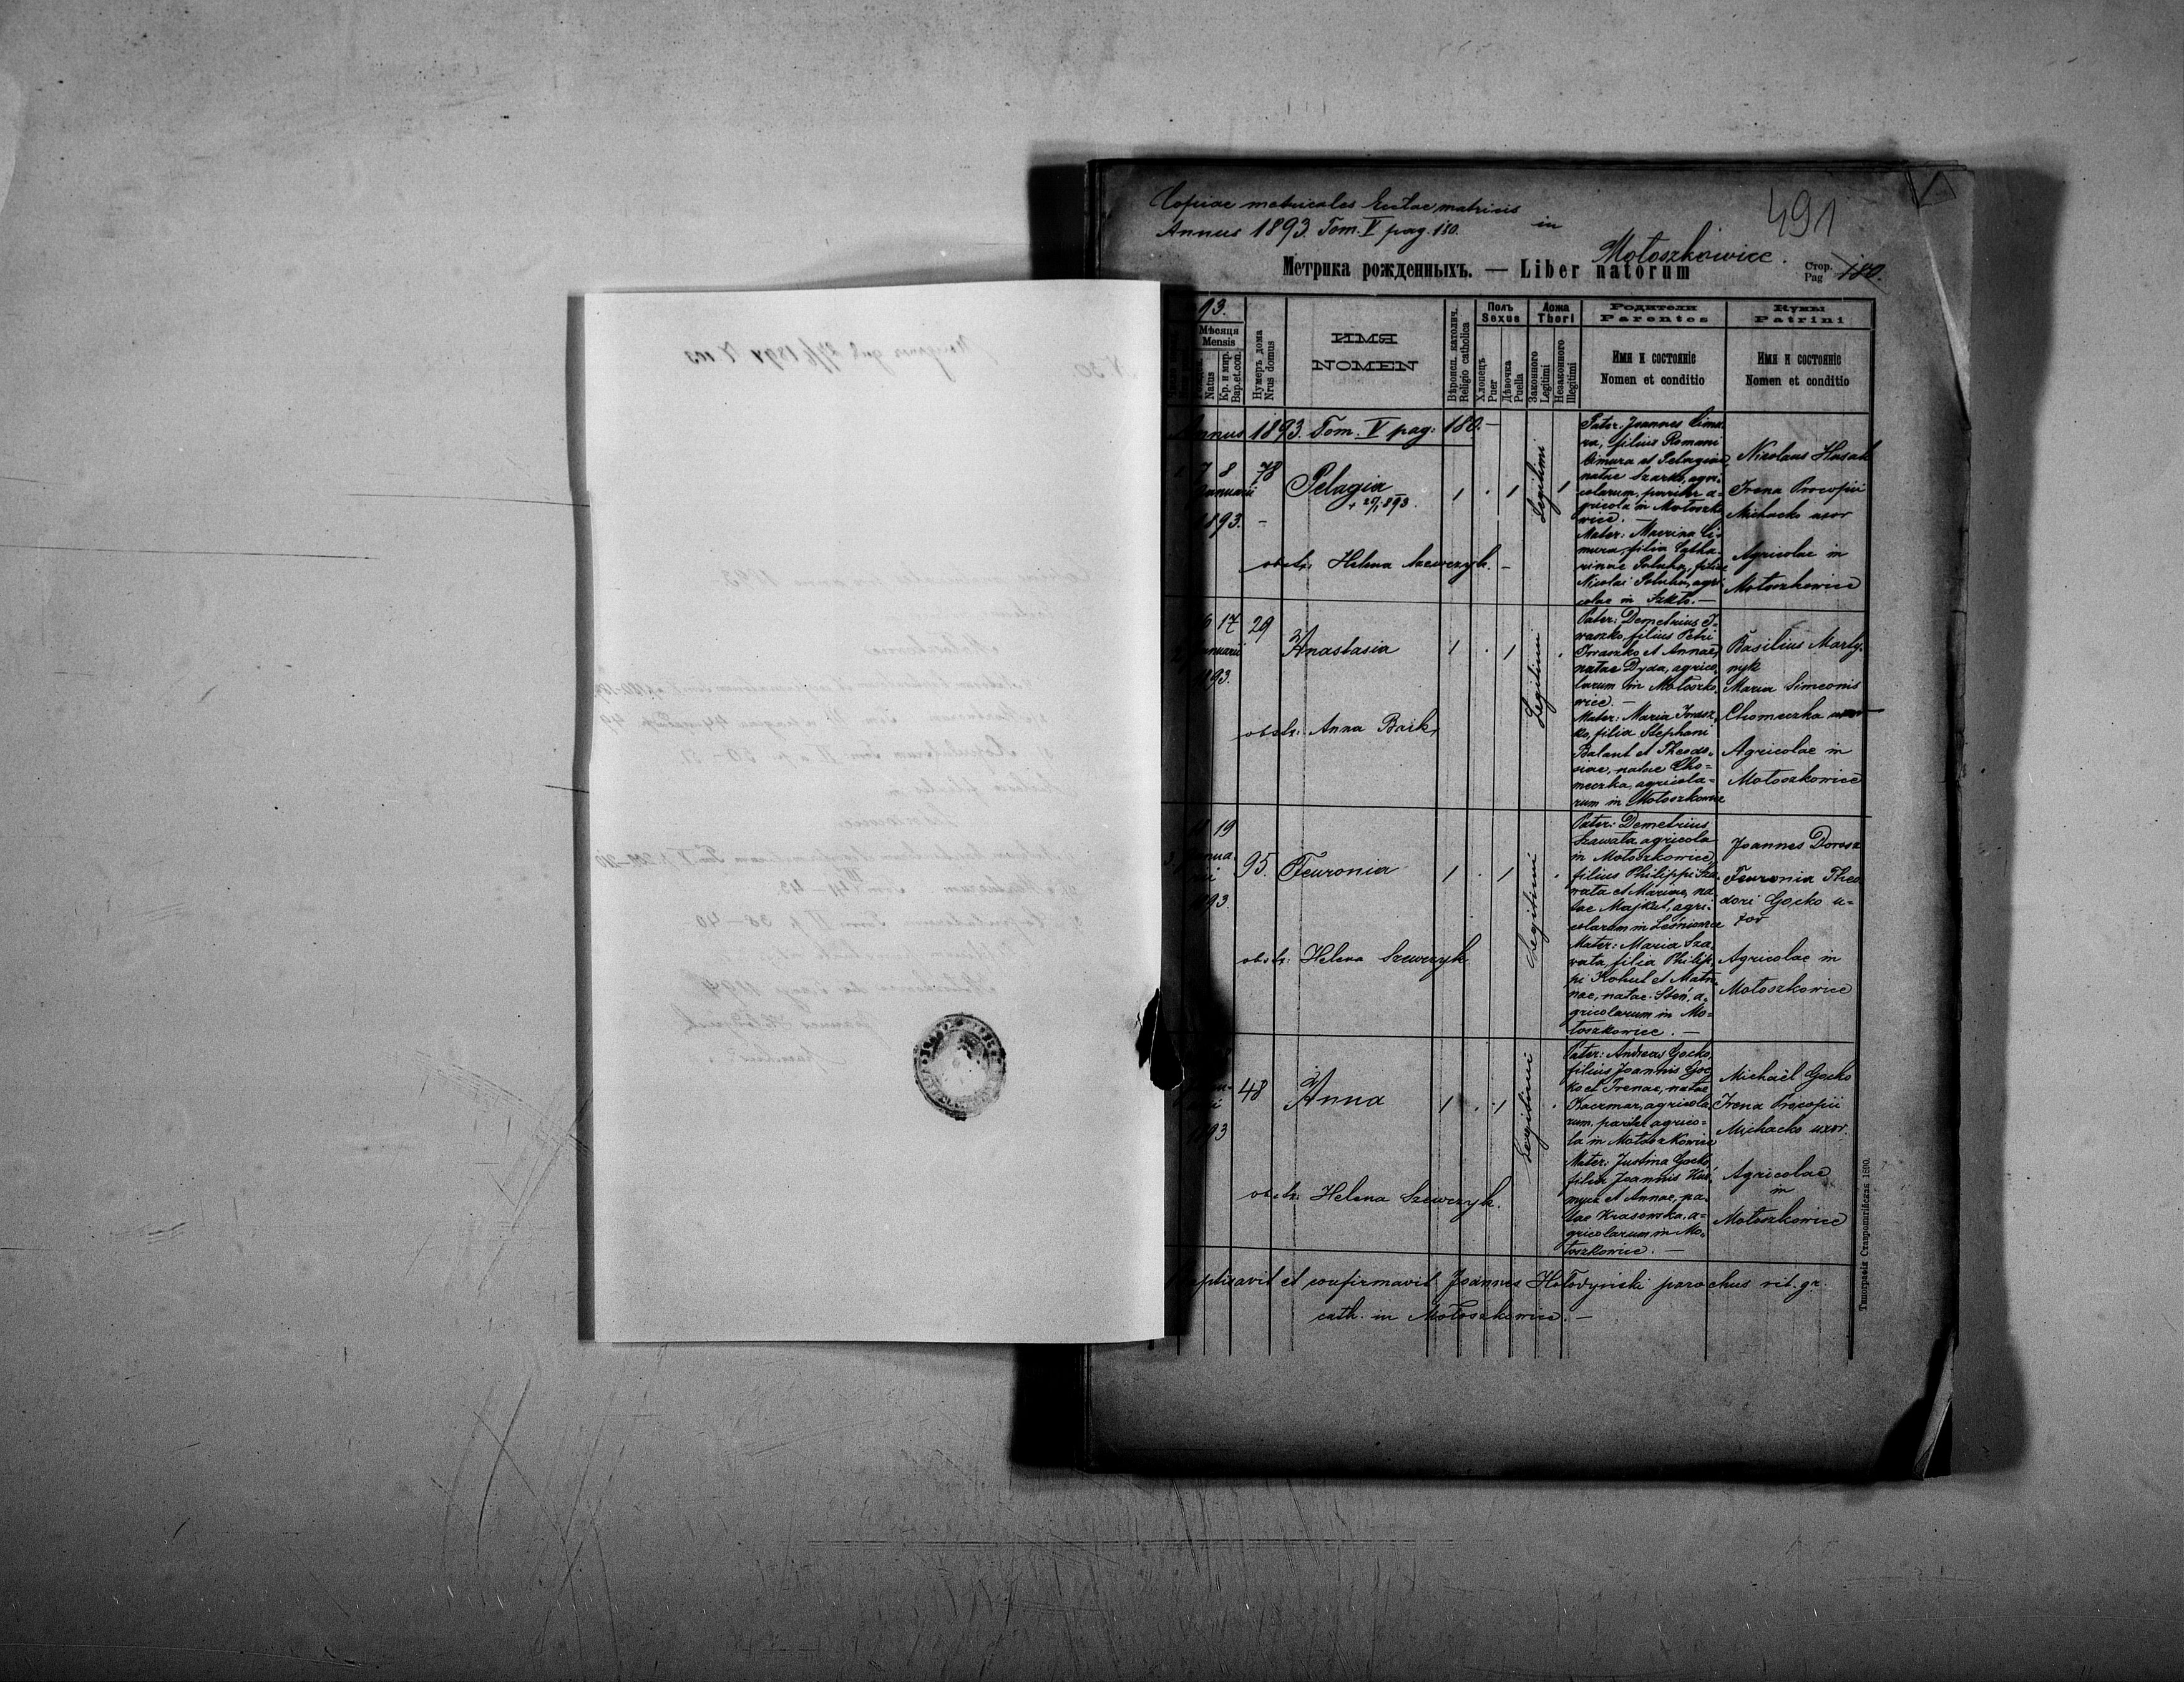 Copiae metricales Ecclae matricis
in
Annus 1893. Tom. V pag. 180.
Mołoszkowice.
491
Метрика рожденныхъ. — Liber natorum
Стор.
Pag 180.
93.
Мѣсяця
Mensis
Natus
Кр. и мир.
Bap. et con.
Нумеръ дома
Nrus domus
ИМЯ
NOMEN
Вѣроисп. католич.
Religio catholica
Полъ
Sexus
Хлопець
Puer
Дѣвочка
Puella
Ложа
Thori
Законного
Legitimi
Незаконного
Illegitimi
Родители
Parentes
Имя и состояніе
Nomen et conditio
Кумы
Patrini
Имя и состояніе
Nomen et conditio
Annus 1893. Tom. V pag: 180.—
1 7 8
Januarii
1893.
78
Pelagia
+ 27/1 893.
1 . 1
Legitimi
obstr. Helena Szewczyk. —
Pater: Joannes Cimu-
ra, filius Romani
Cimura et Pelagiae,
natae Szarko, agri-
colarum, pariter a-
gricola in Mołoszko
wice. —
Mater: Marina Ci-
mura, filia Catha-
rinae Poluha, filiae
Nicolai Poluha, agri
colae in Szkło. —
Nicolaus Husak
Irena Procopii
Michacko uxor
Agricolae in
Mołoszkowice
17
Januarii
1893.
29
Anastasia
1 . 1
Legitimi
obstr: Anna Baik,
Pater: Demetrius I-
waszko, filius Petri
Iwaszko et Annae,
natae Dyda, agrico
larum in Mołoszko
wice. —
Mater: Maria Iwasz
ko, filia Stephani
Balant et Theodo-
siae, natae Cho=
meczka, agricola=
rum in Mołoszkowice
Basilius Marty-
nyk
Maria Simeonis
Chomeczka uxor
Agricolae in
Mołoszkowice
3.
18 19
Janua-
rii
1893.
95.
Feuronia
1 . 1
Legitimi
obstr: Helena Szewczyk
Pater: Demetrius
Szawata, agricola
in Mołoszkowice,
filius Philippi Sza-
wata et Marinae, na
tae Majkut, agri-
colarum in Leśniowice
Mater: Maria Sza-
wata, filia Philip
pi Kohut et Matro
nae, natae Steń, a-
gricolarum in Mo=
łoszkowice. —
Joannes Dorosz
Feuronia Theo
dori Gocko u=
xor
Agricolae in
Mołoszkowice
1893
48
Anna
1 . 1
Legitimi
obstr: Helena Szewczyk.
Pater: Andreas Gocko,
filius Joannis Goc
ko et Irenae, natae
Kaczmar, agricola
rum, pariter agrico=
la in Mołoszkowice
Mater: Justina Gocko,
filia Joannis
et Annae, na-
tae Krasowska, a=
gricolarum in Mo-
łoszkowice. —
Michaël Gocko
Irena Procopii
Michacko uxor.
Agricolae
in
Mołoszkowice
Baptisavit et confirmavit Joannes Hołodyński parochus rit. gr.
cath. in Mołoszkowice. —
Типографія Ставропигійская 1890.